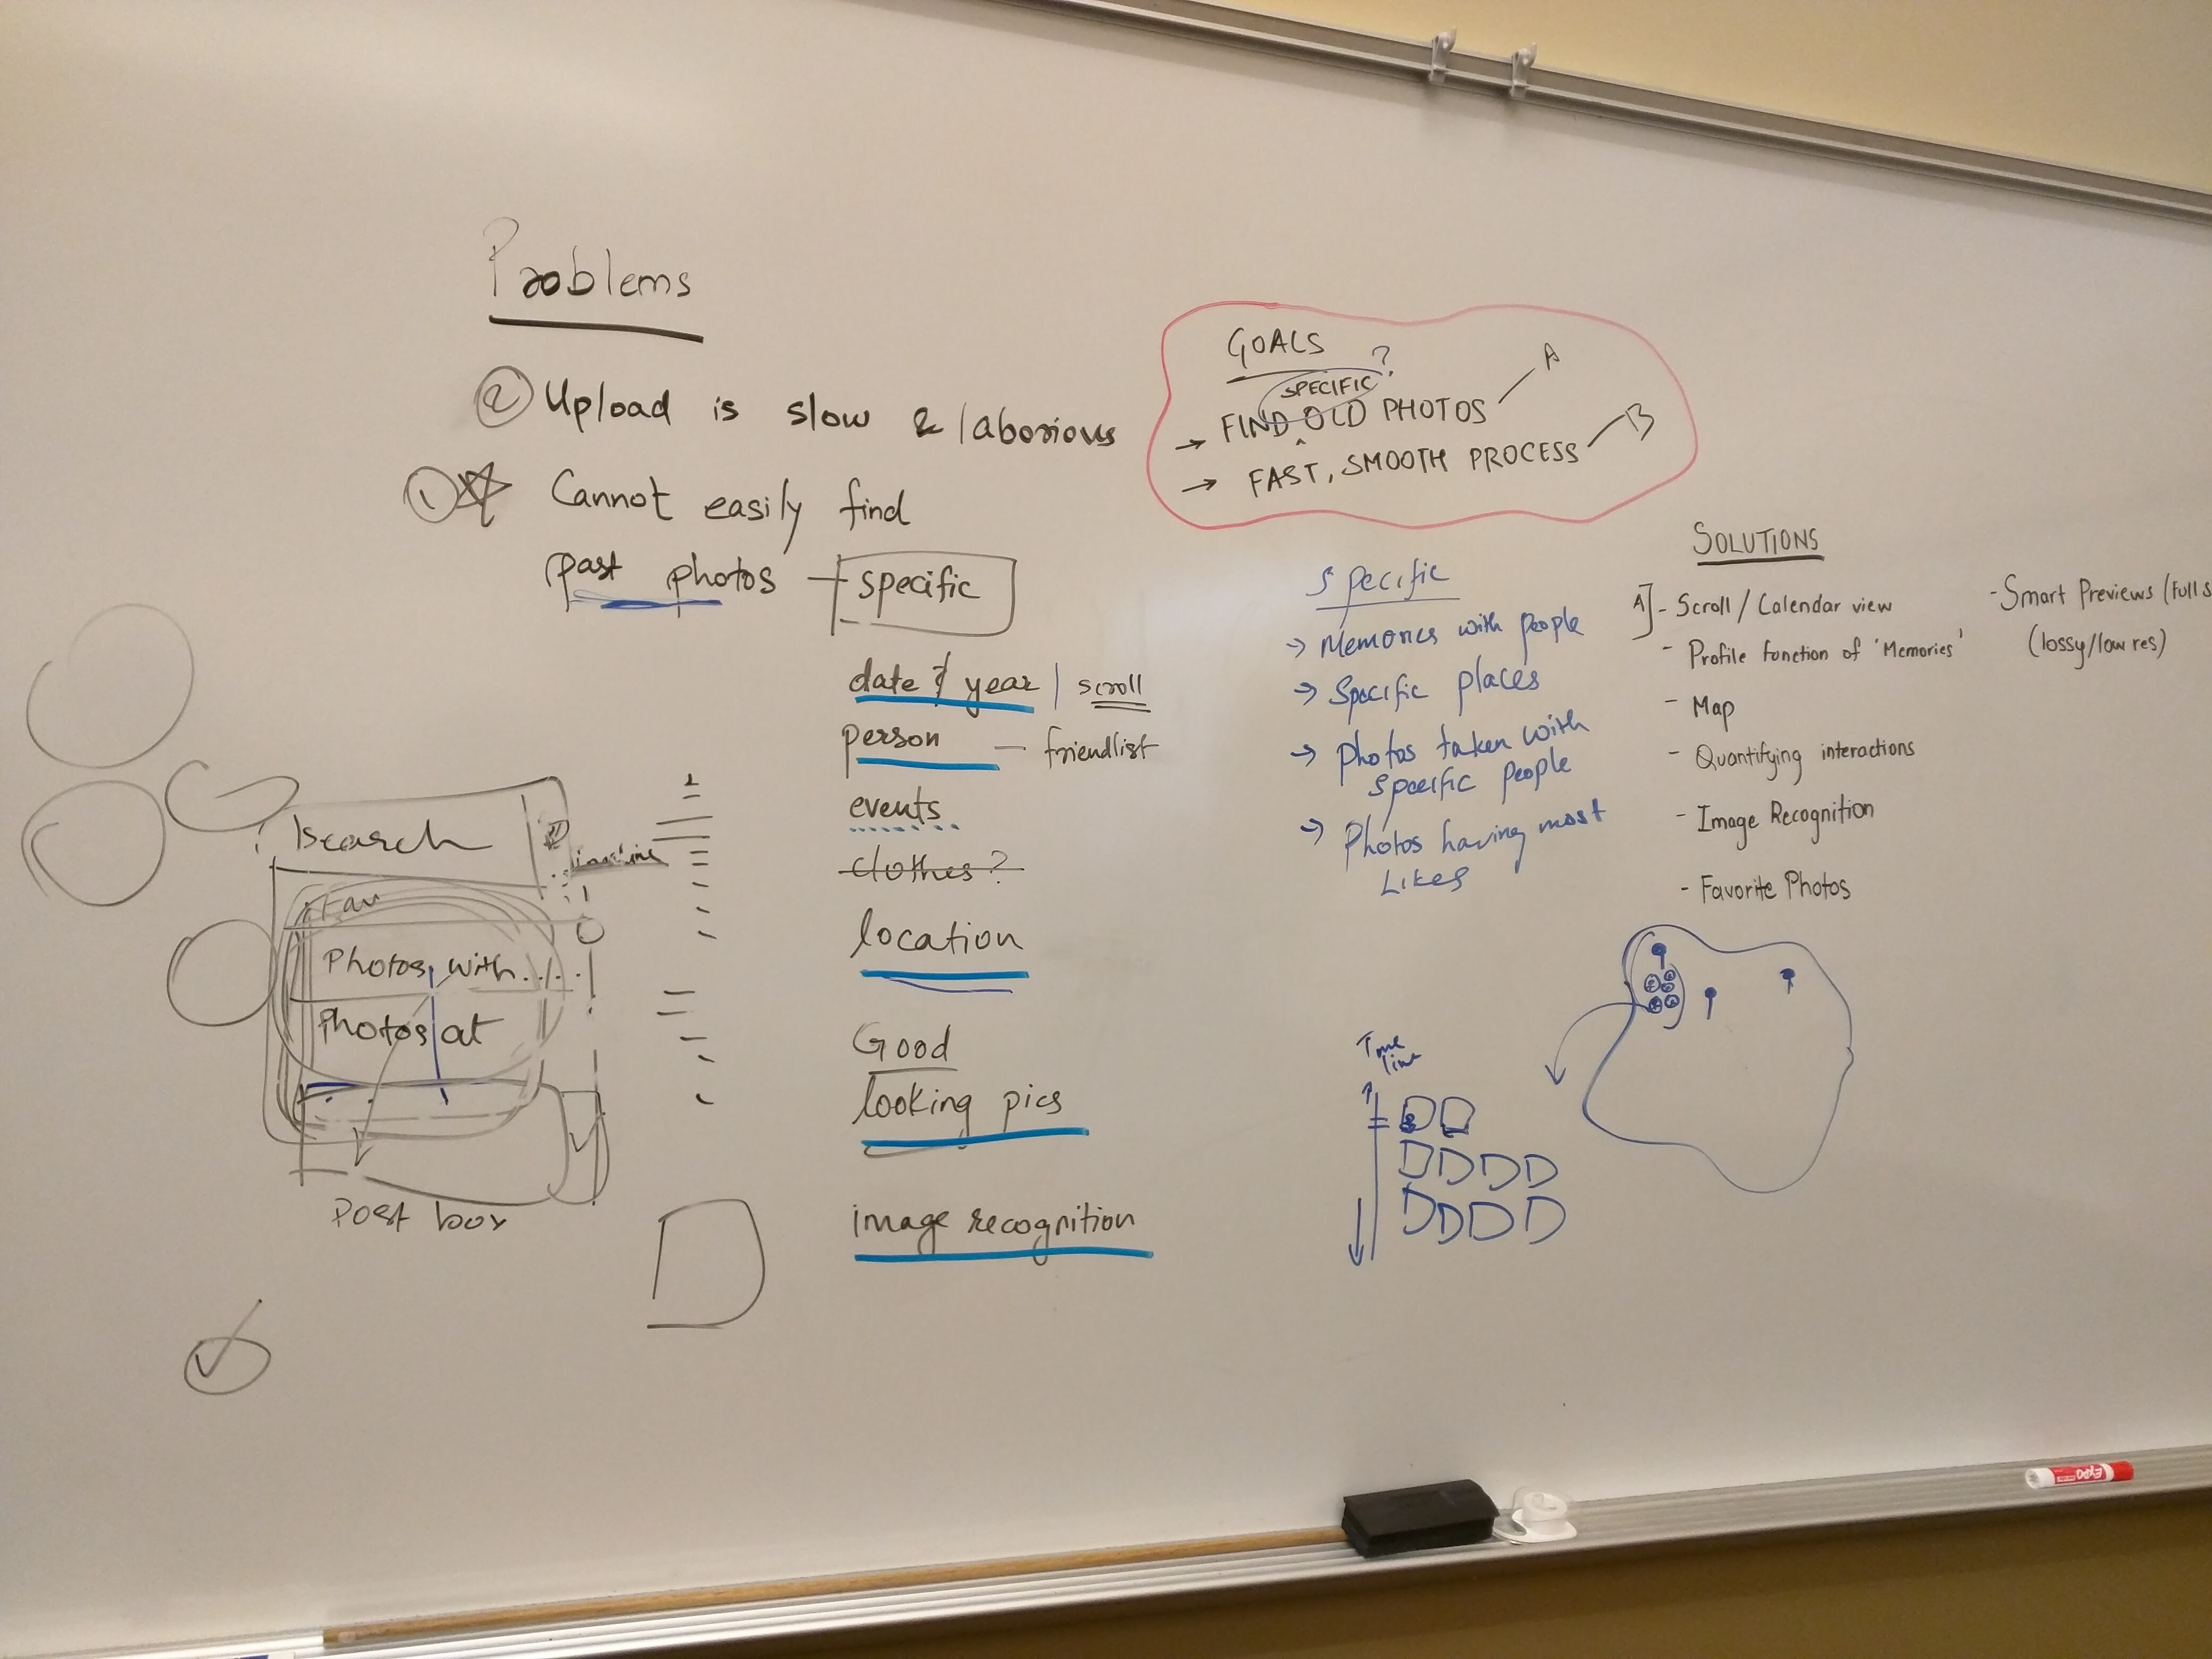 Problems
② Upload is slow & laborious
① Cannot easily find
past photos
specific
date & year | scroll
person — friendlist
events
clothes?
location
Good
looking pics
image recognition
Search
timeline
Fav
Photos with....
Photos at
Post box
GOALS
SPECIFIC?
→ FIND OLD PHOTOS A
→ FAST, SMOOTH PROCESS B
Specific
→ Memories with people
→ Specific places
→ Photos taken with
specific people
→ Photos having most
Likes
Time
line
SOLUTIONS
A] - Scroll / Calendar view
- Profile function of 'Memories'
- Map
- Quantifying interactions
- Image Recognition
- Favorite Photos
- Smart Previews (Full s
(lossy/low res)
EXPO